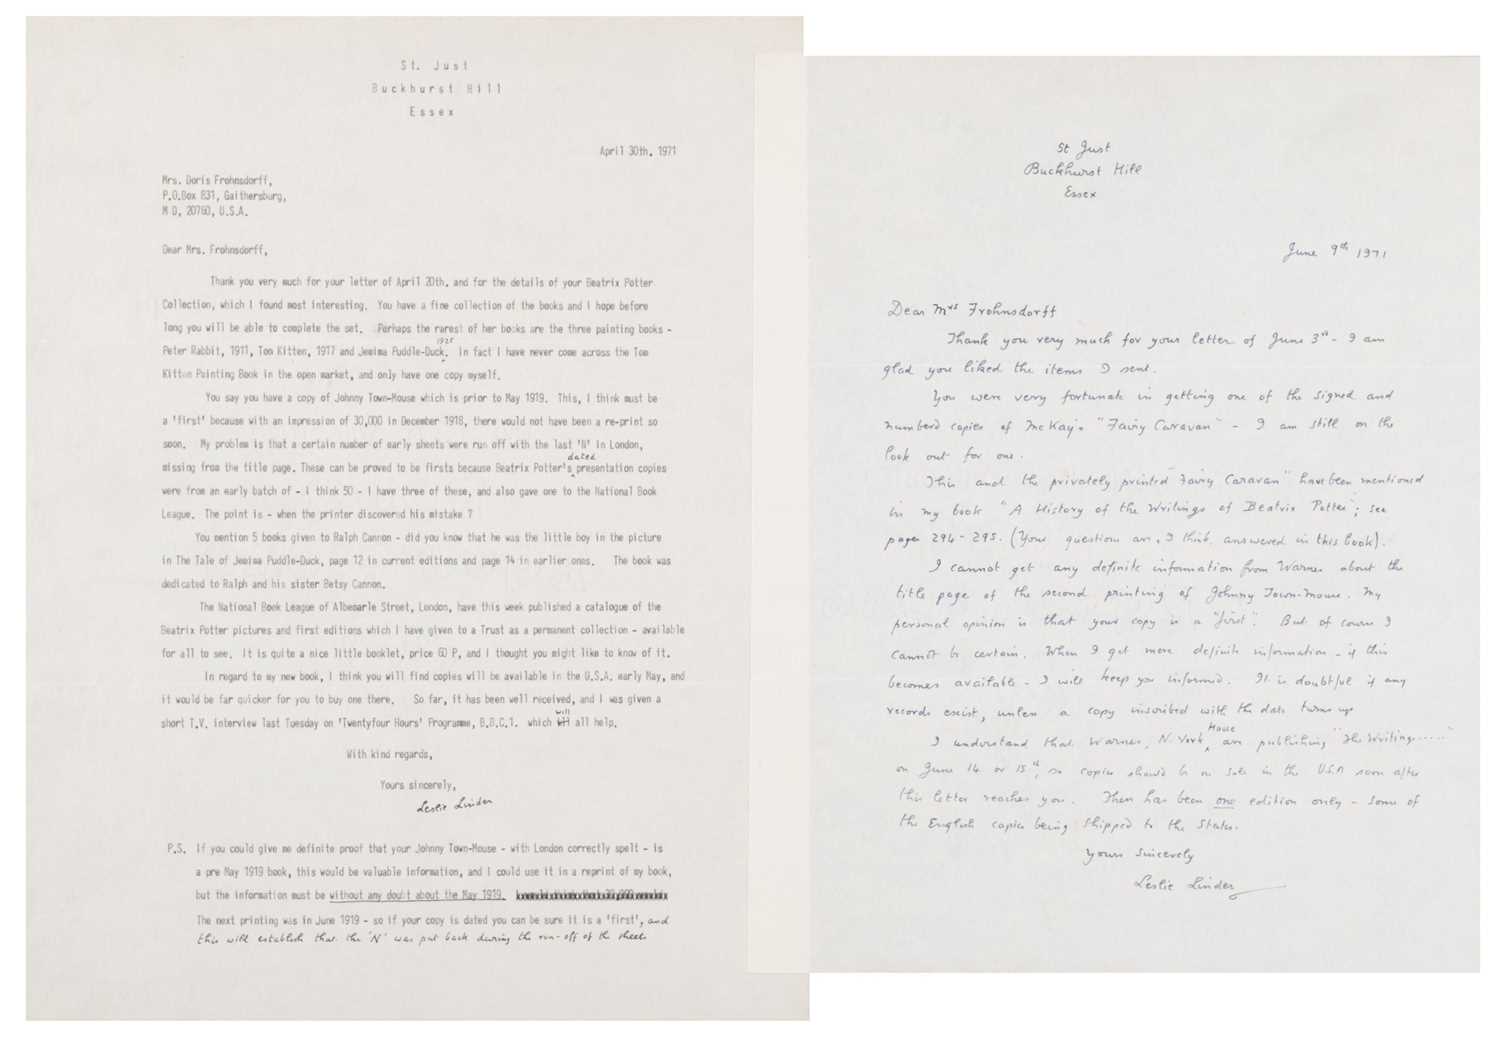 St. Just
Buckhurst Hill
Essex
April 30th. 1971
Mrs. Doris Frohnsdorff,
P.O.Box 831, Gaithersburg,
M D, 20760, U.S.A.
Dear Mrs. Frohnsdorff,
Thank you very much for your letter of April 20th. and for the details of your Beatrix Potter
Collection, which I found most interesting. You have a fine collection of the books and I hope before
long you will be able to complete the set. Perhaps the rarest of her books are the three painting books -
1925
Peter Rabbit, 1911, Tom Kitten, 1917 and Jemima Puddle-Duck. In fact I have never come across the Tom
Kitten Painting Book in the open market, and only have one copy myself.
You say you have a copy of Johnny Town-Mouse which is prior to May 1919. This, I think must be
a 'first' because with an impression of 30,000 in December 1918, there would not have been a re-print so
soon. My problem is that a certain number of early sheets were run off with the last 'N' in London,
dated
missing from the title page. These can be proved to be firsts because Beatrix Potter's presentation copies
were from an early batch of - I think 50 - I have three of these, and also gave one to the National Book
League. The point is - when the printer discovered his mistake ?
You mention 5 books given to Ralph Cannon - did you know that he was the little boy in the picture
in The Tale of Jemima Puddle-Duck, page 12 in current editions and page 14 in earlier ones. The book was
dedicated to Ralph and his sister Betsy Cannon.
The National Book League of Albemarle Street, London, have this week published a catalogue of the
Beatrix Potter pictures and first editions which I have given to a Trust as a permanent collection - available
for all to see. It is quite a nice little booklet, price 60 P, and I thought you might like to know of it.
In regard to my new book, I think you will find copies will be available in the U.S.A. early May, and
it would be far quicker for you to buy one there. So far, it has been well received, and I was given a
will
short T.V. interview last Tuesday on 'Twentyfour Hours' Programme, B.B.C.1. which all help.
With kind regards,
Yours sincerely,
Leslie Linder
P.S. If you could give me definite proof that your Johnny Town-Mouse - with London correctly spelt - is
a pre May 1919 book, this would be valuable information, and I could use it in a reprint of my book,
but the information must be without any doubt about the May 1919.
The next printing was in June 1919 - so if your copy is dated you can be sure it is a 'first', and
this will establish that the 'N' was put back during the run-off of the sheets
St Just
Buckhurst Hill
Essex
June 9th 1971
Dear Mrs Frohnsdorff
Thank you very much for your letter of June 3rd - I am
glad you liked the items I sent.
You were very fortunate in getting one of the signed and
numberd copies of McKay's "Fairy Caravan" - I am still on the
look out for one.
This and the privately printed "Fairy Caravan" have been mentioned
in my book "A History of the Writings of Beatrix Potter"; see
pages 294 - 295. (Your questions are, I think, answered in this book).
I cannot get any definite information from Warnes about the
title page of the second printing of Johnny Town-mouse. My
personal opinion is that your copy is a "first". But of course I
cannot be certain. When I get more definite information - if this
becomes available - I will keep you informed. It is doubtful if any
records exist, unless a copy inscribed with the date turns up
House
I understand that Warnes, N. York, are publishing "The Writings....."
on June 14 or 15th, so copies should be on sale in the U.S.A soon after
this letter reaches you. There has been one edition only - some of
the English copies being shipped to the States.
Yours sincerely
Leslie Linder